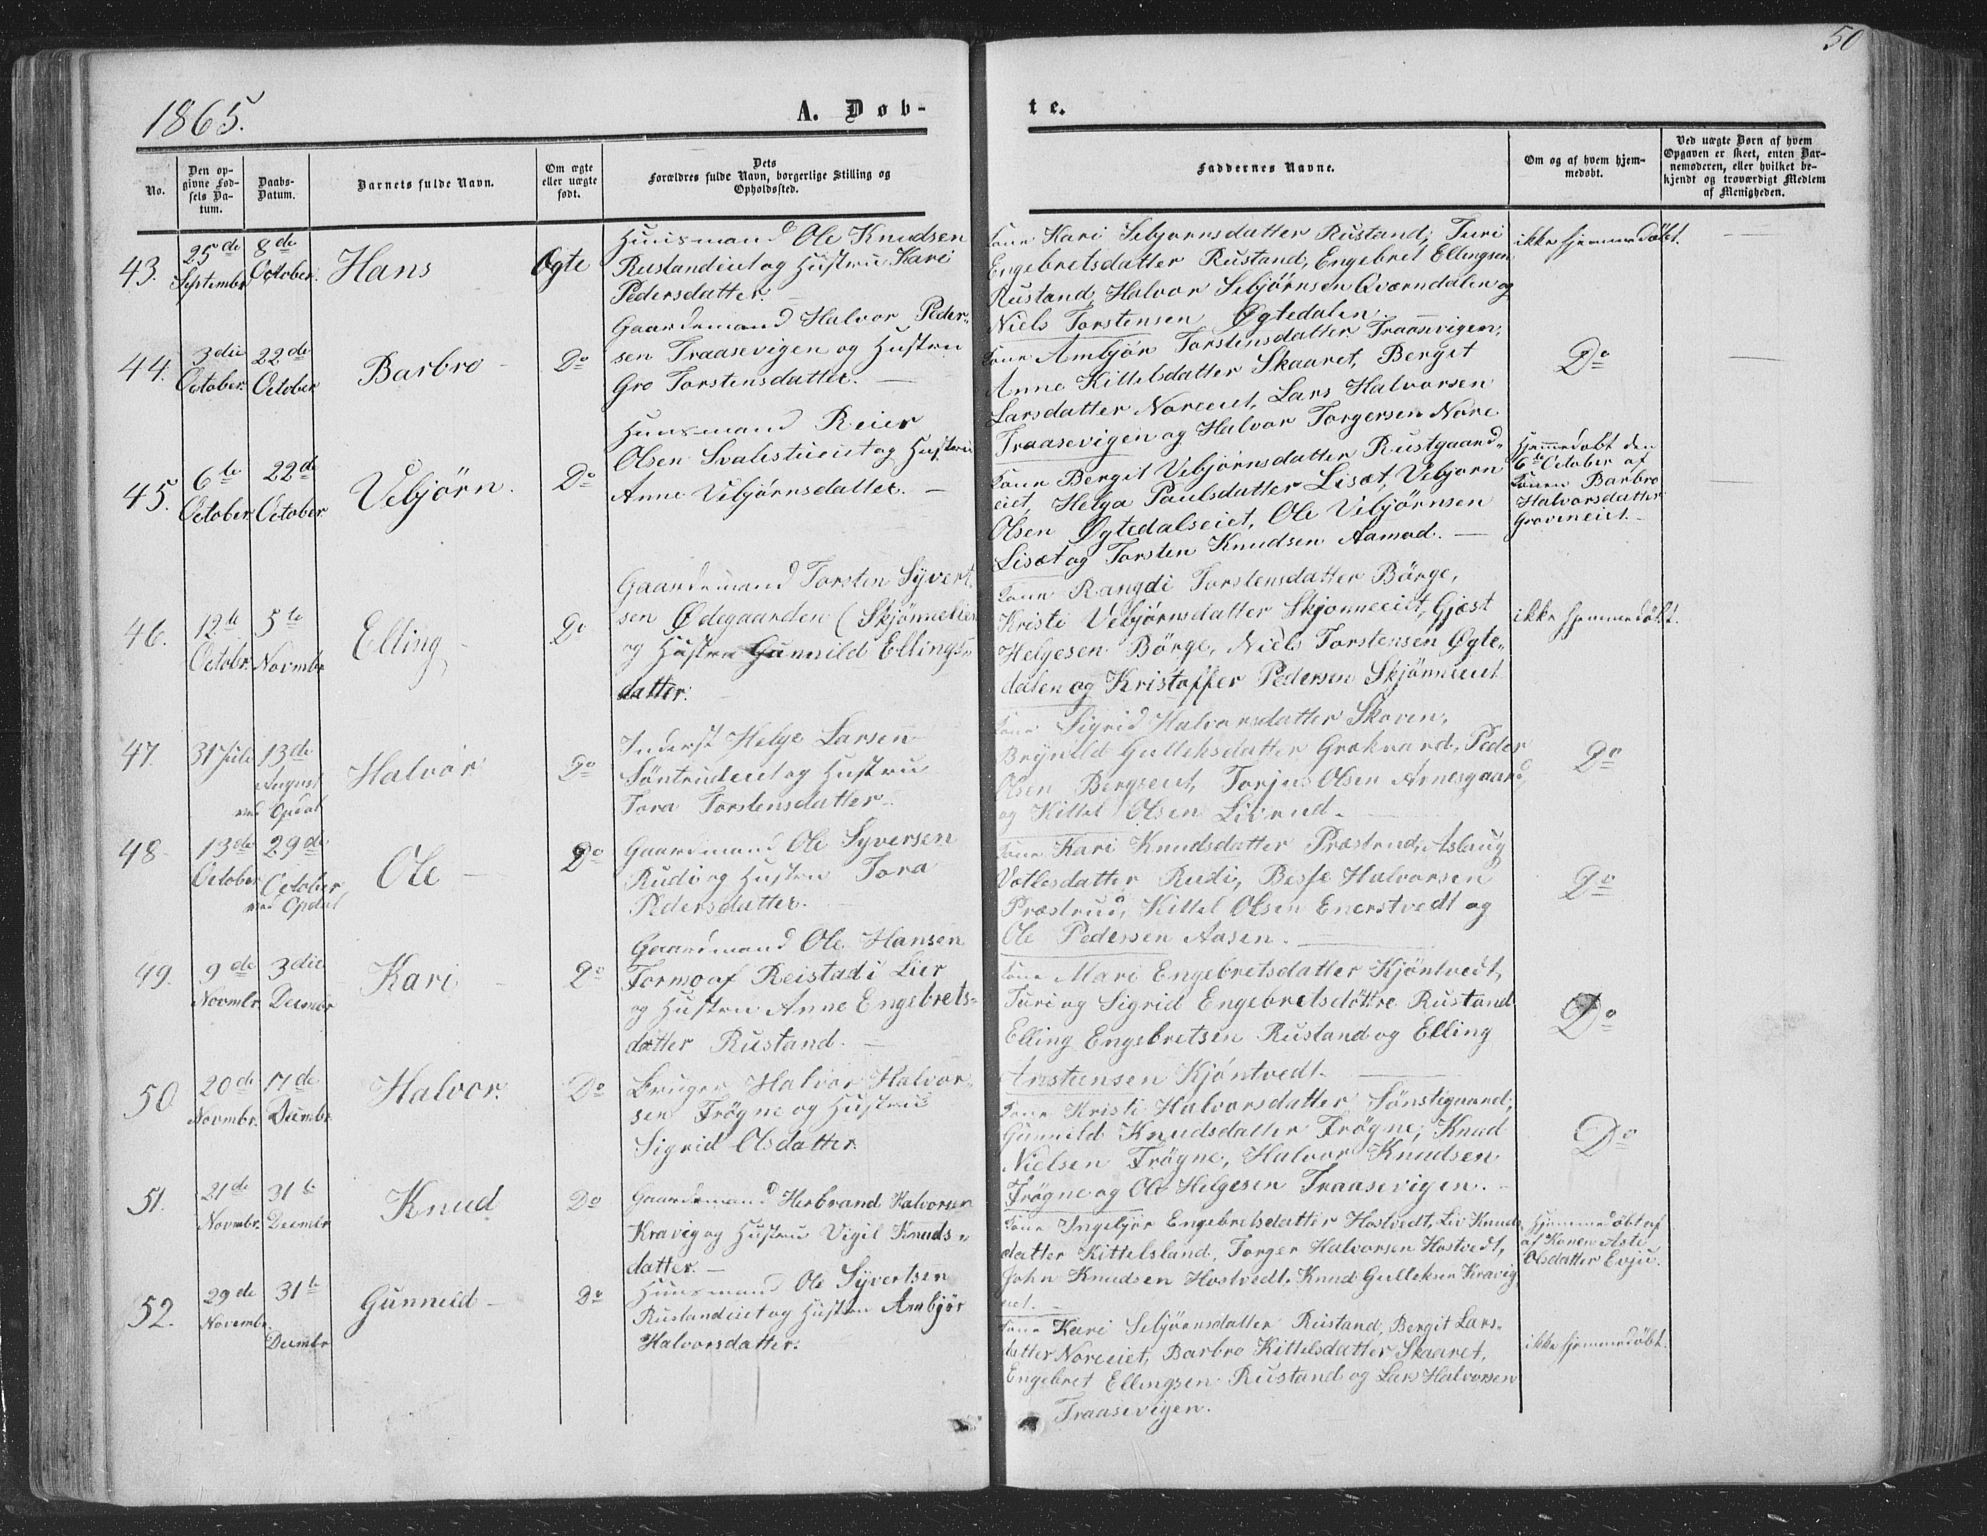 50
1865.
A. Døb-
te.
No.
Den op-
givne Fød-
sels Da-
tum.
Daabs-
Datum.
Barnets fulde Navn.
Om ægte
eller uægte
født.
Dets
Forældres fulde Navn, borgerlige Stilling og
Opholdssted.
Faddernes Navne.
Om og af hvem hjem-
medøbt.
Ved uægte Børn af hvem
Opgaven er skeet, enten Bar-
nemoderen, eller hvilket be-
kjendt og troværdigt Medlem
af Menigheden.
43.
25de
September
8de
October.
Hans
Ægte
Huusmand Ole Knudsen
Rustandeiet og Hustru Kari
Pedersdatter.
Kone Kari Sebjørnsdatter Rustand, Turi
Engebretsdatter Rustand, Engebret Ellingsen
Rustand, Halvor Sebjørnsen Qværndalen og
Niels Torstensen Øgtedalen.
ikke hjemmedøbt.
44.
3die
October.
22de
October
Barbro
Do
Gaardemand Halvor Peder-
sen Traasevigen og Hustru
Gro Torstensdatter.
Kone Ambjør Torstensdatter Traasevigen,
Anne Kittelsdatter Skaaret, Bergit
Larsdatter Noreeiet, Lars Halvorsen
Traasevigen og Halvor Torgersen Nore
Do
45.
6te
October
22de
October
Vebjørn.
Do
Huusmand Reier
Olsen Svalestueiet og Hustru
Anne Vebjørnsdatter.
Kone Bergit Vebjørnsdatter Rustgaard-
eiet, Helga Paulsdatter Lisæt, Vebjørn
Olsen Øgtedalseiet, Ole Vebjørnsen
Lisæt og Torsten Knudsen Aamod.
Hjemmedøbt den
6te October af
Konen Barbro
Halvorsdatter
Groveneiet.
46.
12te
Octobr.
5te
Novmbr
Elling
Do
Gaardemand Torsten Syvert
sen Ødegaarden (Skjønnelien
og Hustru Gunnild Ellings-
datter.
Kone Rangdi Torstensdatter Børge,
Kristi Vebjørnsdatter Skjønneeiet, Gjest
Helgesen Børge, Niels Torstensen Øgte-
dalen og Kristoffer Pedersen Skjønneeiet
ikke hjemmedøbt.
47.
31 Juli
13de
August
ved Opdal
Halvor
Do
Inderst Helge Larsen
Söntrudeiet og Hustru
Tora Torstensdatter.
Kone Sigrid Halvorsdatter Skoven,
Brynild Gulleksdatter Grøkvard, Peder
Olsen Bergseiet, Torjus Olsen Arnesgaard
og Kittel Olsen Liverud.
Do
48.
13de
October
29de
October
ved Opdal
Ole
Do
Gaardmand Ole Syversen
Rudi og Hustru Tora
Pedersdatter.
Kone Kari Knudsdatter Præstrud, Aslaug
Votlesdatter Rudi, Besse Halvorsen
Præstrud, Kittel Olsen Enerstvedt og
Ole Pedersen Aasen.
Do
49.
9de
Novmbr.
3die
Decmbr
Kari
Do
Gaardmand Ole Hansen
Tormo af Reistad i Lier
og Hustru Anne Engebrets-
datter Rustand.
Kone Mari Engebretsdatter Kjöntvedt,
Turi og Sigrid Engebretsdøttre Rustand
Elling Engebretsen Rustand og Elling
Anstensen Kjöntvedt.
Do
50
20de
Novmbr.
17de
Decmbr.
Halvor.
Do
Bruger Halvor Halvor-
sen Frögne og Hustru
Sigrid Olsdatter.
Kone Kristi Halvorsdatter Sønstigaard,
Gunnild Knudsdatter Frögne, Knud
Nielsen Frögne, Halvor Knudsen
Frögne og Ole Helgesen Traasevigen.
Do
51.
21de
Novmbr.
31te
Decmbr
Knud
Do
Gaardemand Herbrand Halvorsen
Kravig og Hustru Vigil Knuds-
datter.
Kone Ingebjør Engebretsdatter Hostvedt, Liv Knuds
datter Kittelsland, Torger Halvorsen Hostvedt,
John Knudsen Hostvedt, Knud Gulleksen Kravig
eiet.
Hjemmedøbt af
af Konen Aste
Olsdatter Evju.
52.
29de
Novembr.
31te
Decmbr
Gunneld
Do
Huusmand Ole Syvertsen
Rustandeiet og Hustru Ambjør
Halvorsdatter.
Kone Kari Sebjørnsdatter Rustand, Bergit Lars-
datter Noreeiet, Barbro Kittelsdatter Skaaret,
Engebret Ellingsen Rustand og Lars Halvorsen
Traasevigen.
ikke hjemmedøbt.